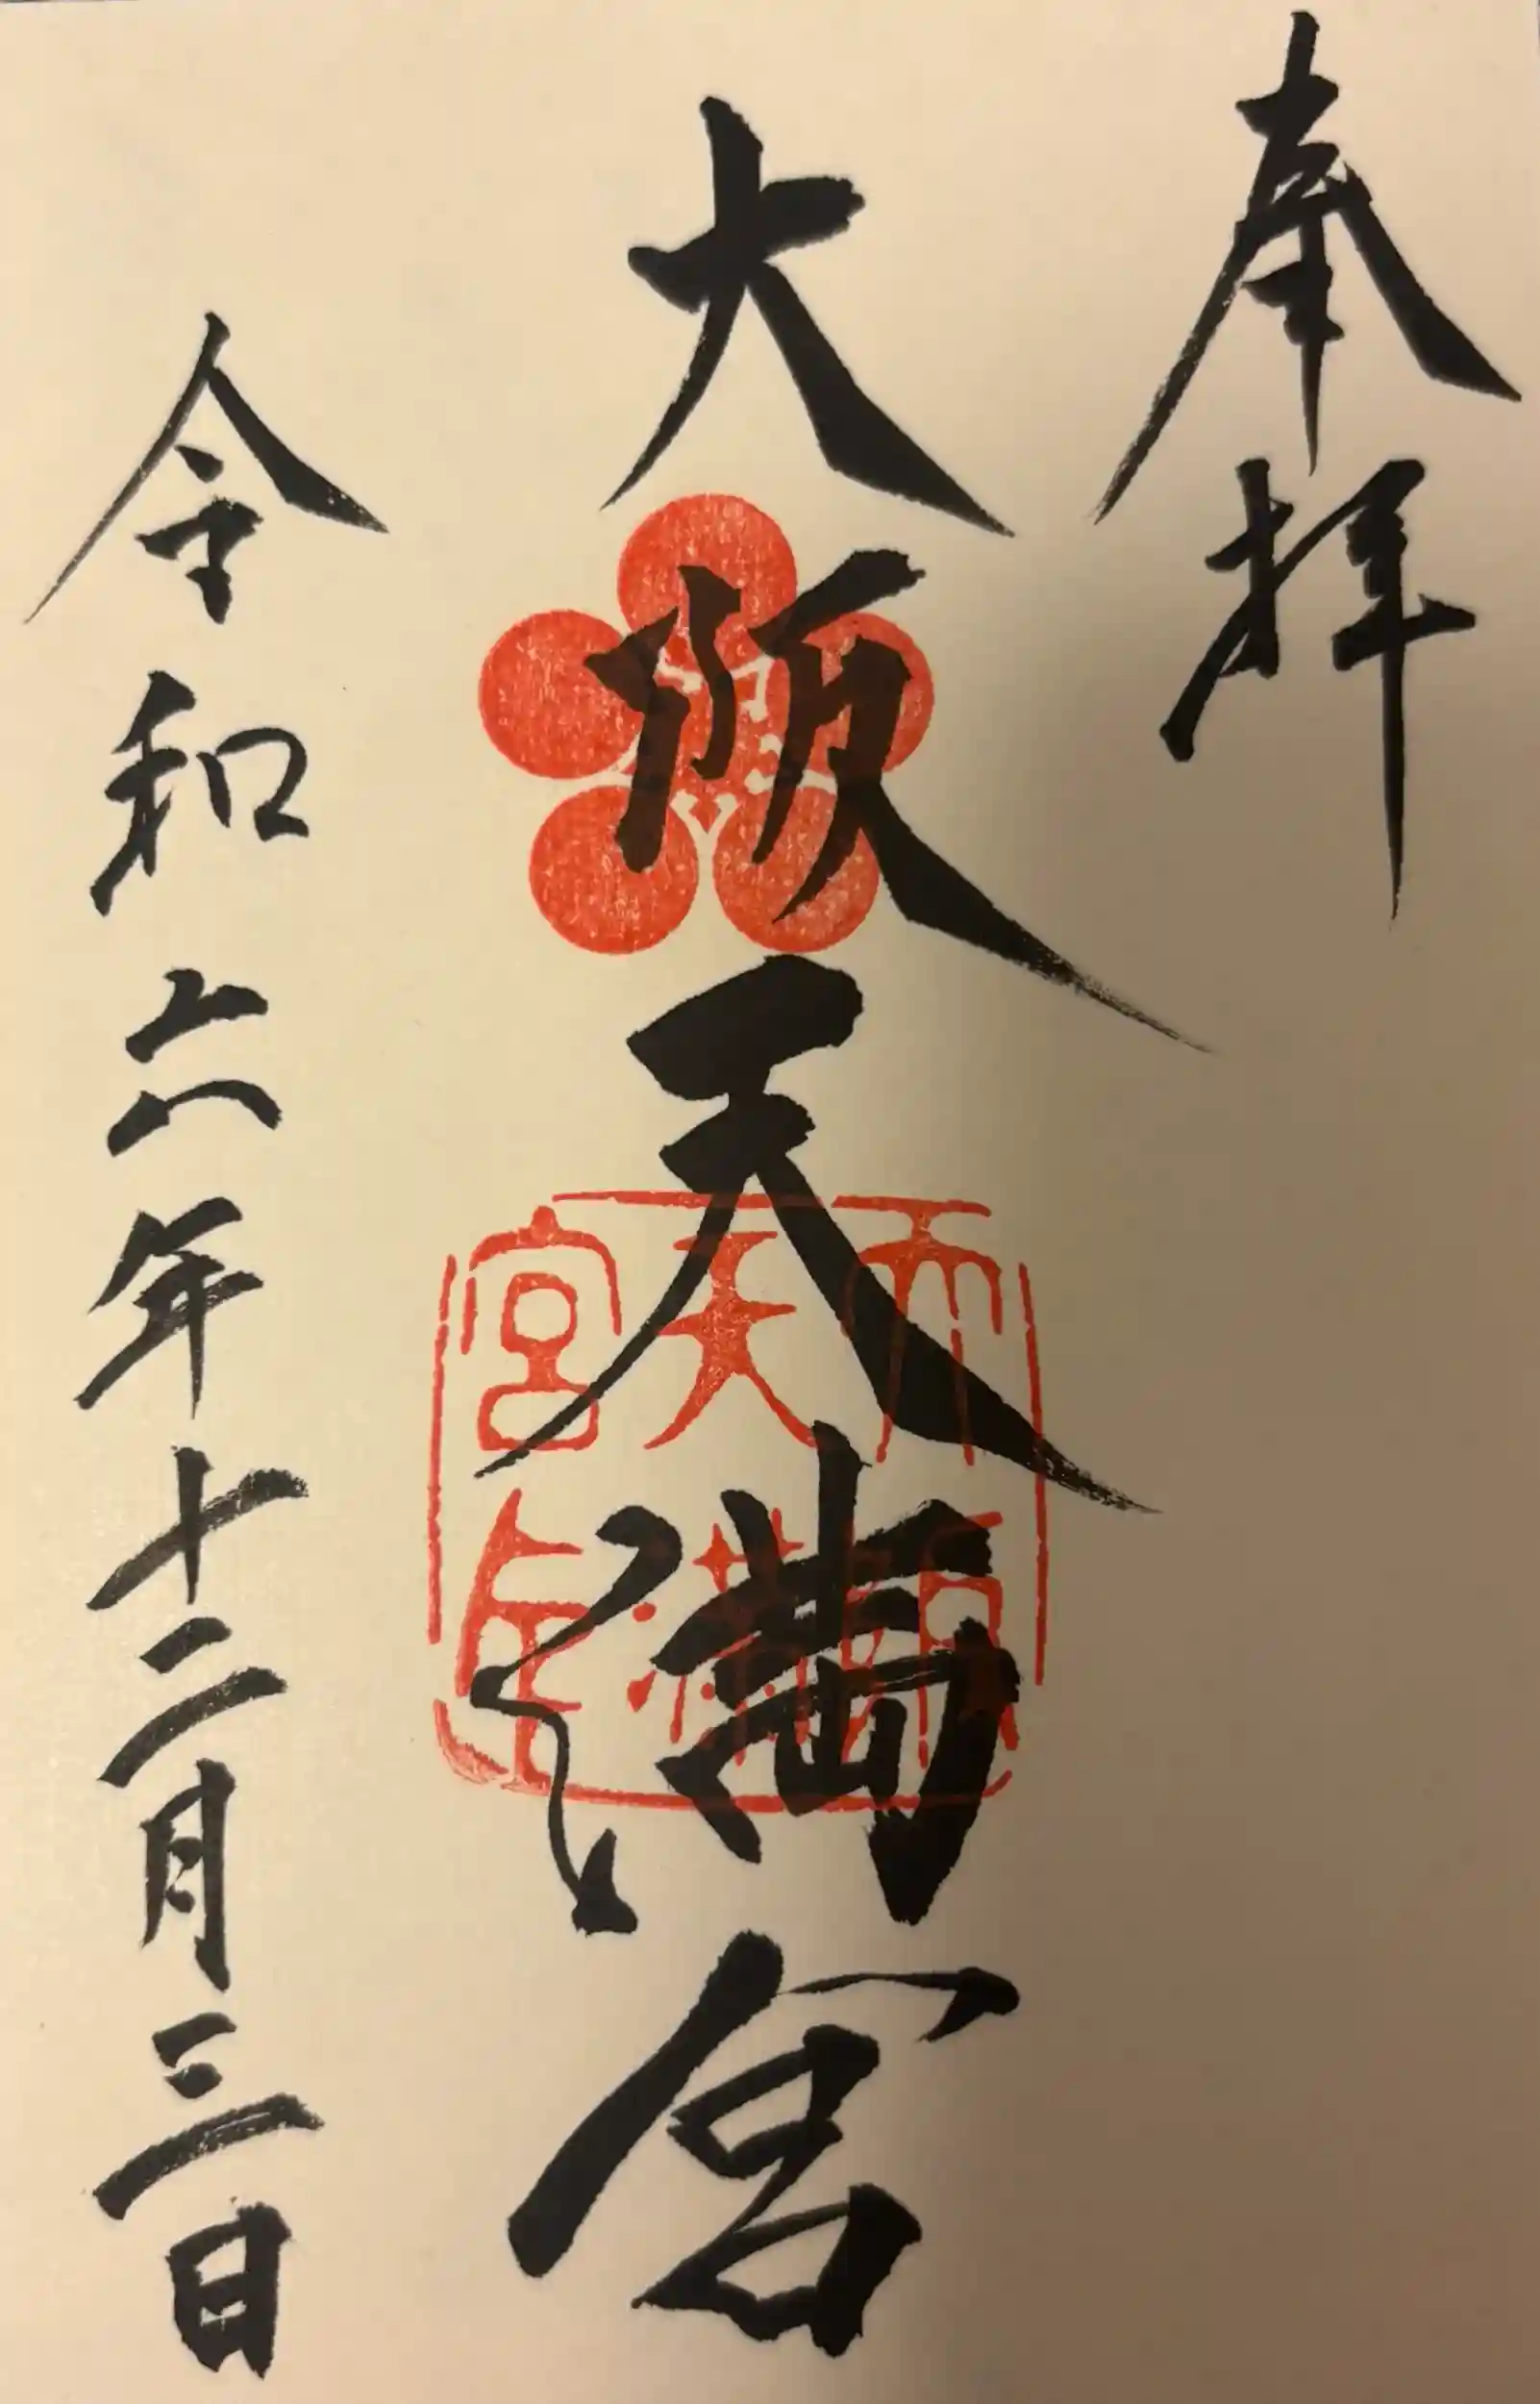 奉拝
大阪天満宮
大阪天満宮印
令和六年十二月三日